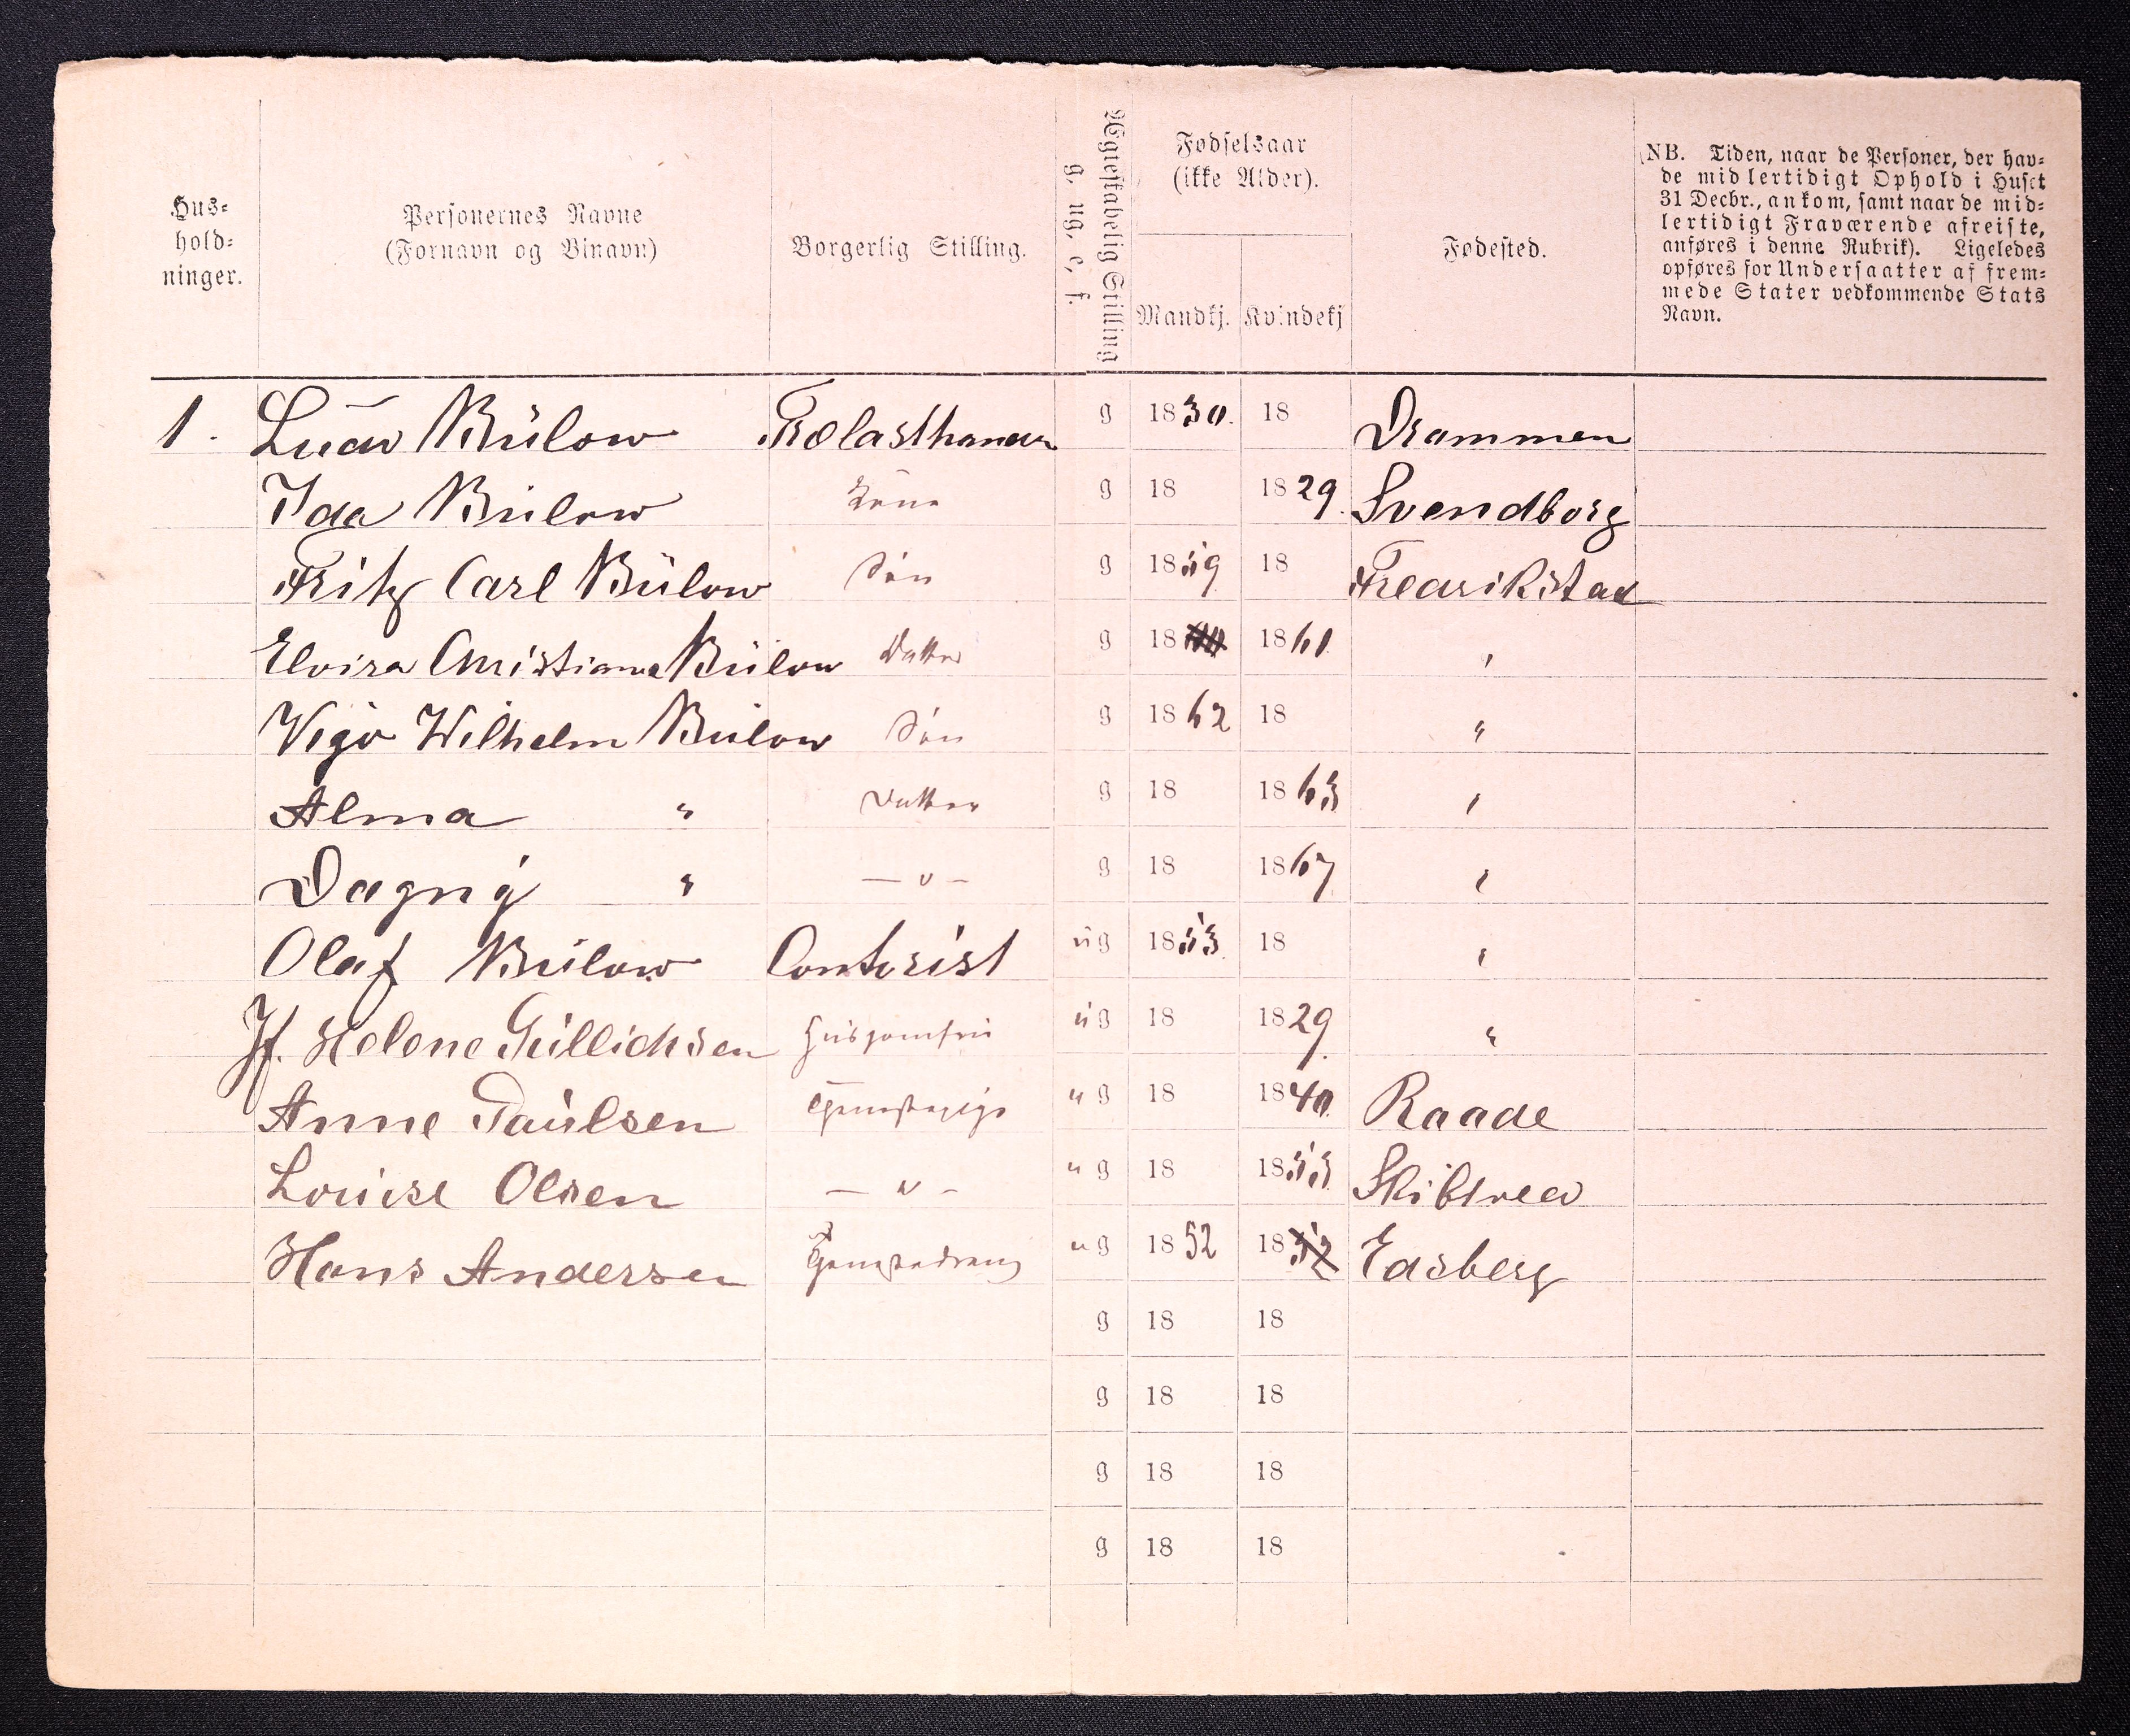 Hus-
hold-
ninger.
Personernes Navne
(Fornavn og Binavn)
Borgerlig Stilling.
Ægteskabelig Stilling
g, ug, e, f.
Fødselsaar
(ikke Alder).
Mandkj. Kvindekj
Fødested.
NB. Tiden, naar de Personer, der hav-
de midlertidigt Ophold i Huset
31 Decbr., ankom, samt naar de mid-
lertidigt Fraværende afreiste,
anføres i denne Rubrik). Ligeledes
opføres for Undersaatter af frem-
mede Stater vedkommende Stats
Navn.
1. Ludv Bülow Trælasthandler g 1830. 18 Drammen
Ida Bülow Kone g 18 1829. Svendborg
Fritz Carl Bülow Søn g 1859 18 Fredrikstad
Elvira Christiane Bülow Datter g 18 1861 "
Vigo Wilhelm Bülow Søn g 1862 18 "
Alma " Datter g 18 1863 "
Dagny " — " — g 18 1867 "
Olaf Bülow Contorist ug 1853 18 "
Jf. Helene Güllichsen Huusjomfru ug 18 1829 "
Anne Paulsen Tjenestepige ug 18 1840 Raade
Louise Olsen — " — ug 18 1853 Skibtved
Hans Andersen Tjenestedreng ug 1852 1852 Edsberg
g 18 18
g 18 18
g 18 18
g 18 18